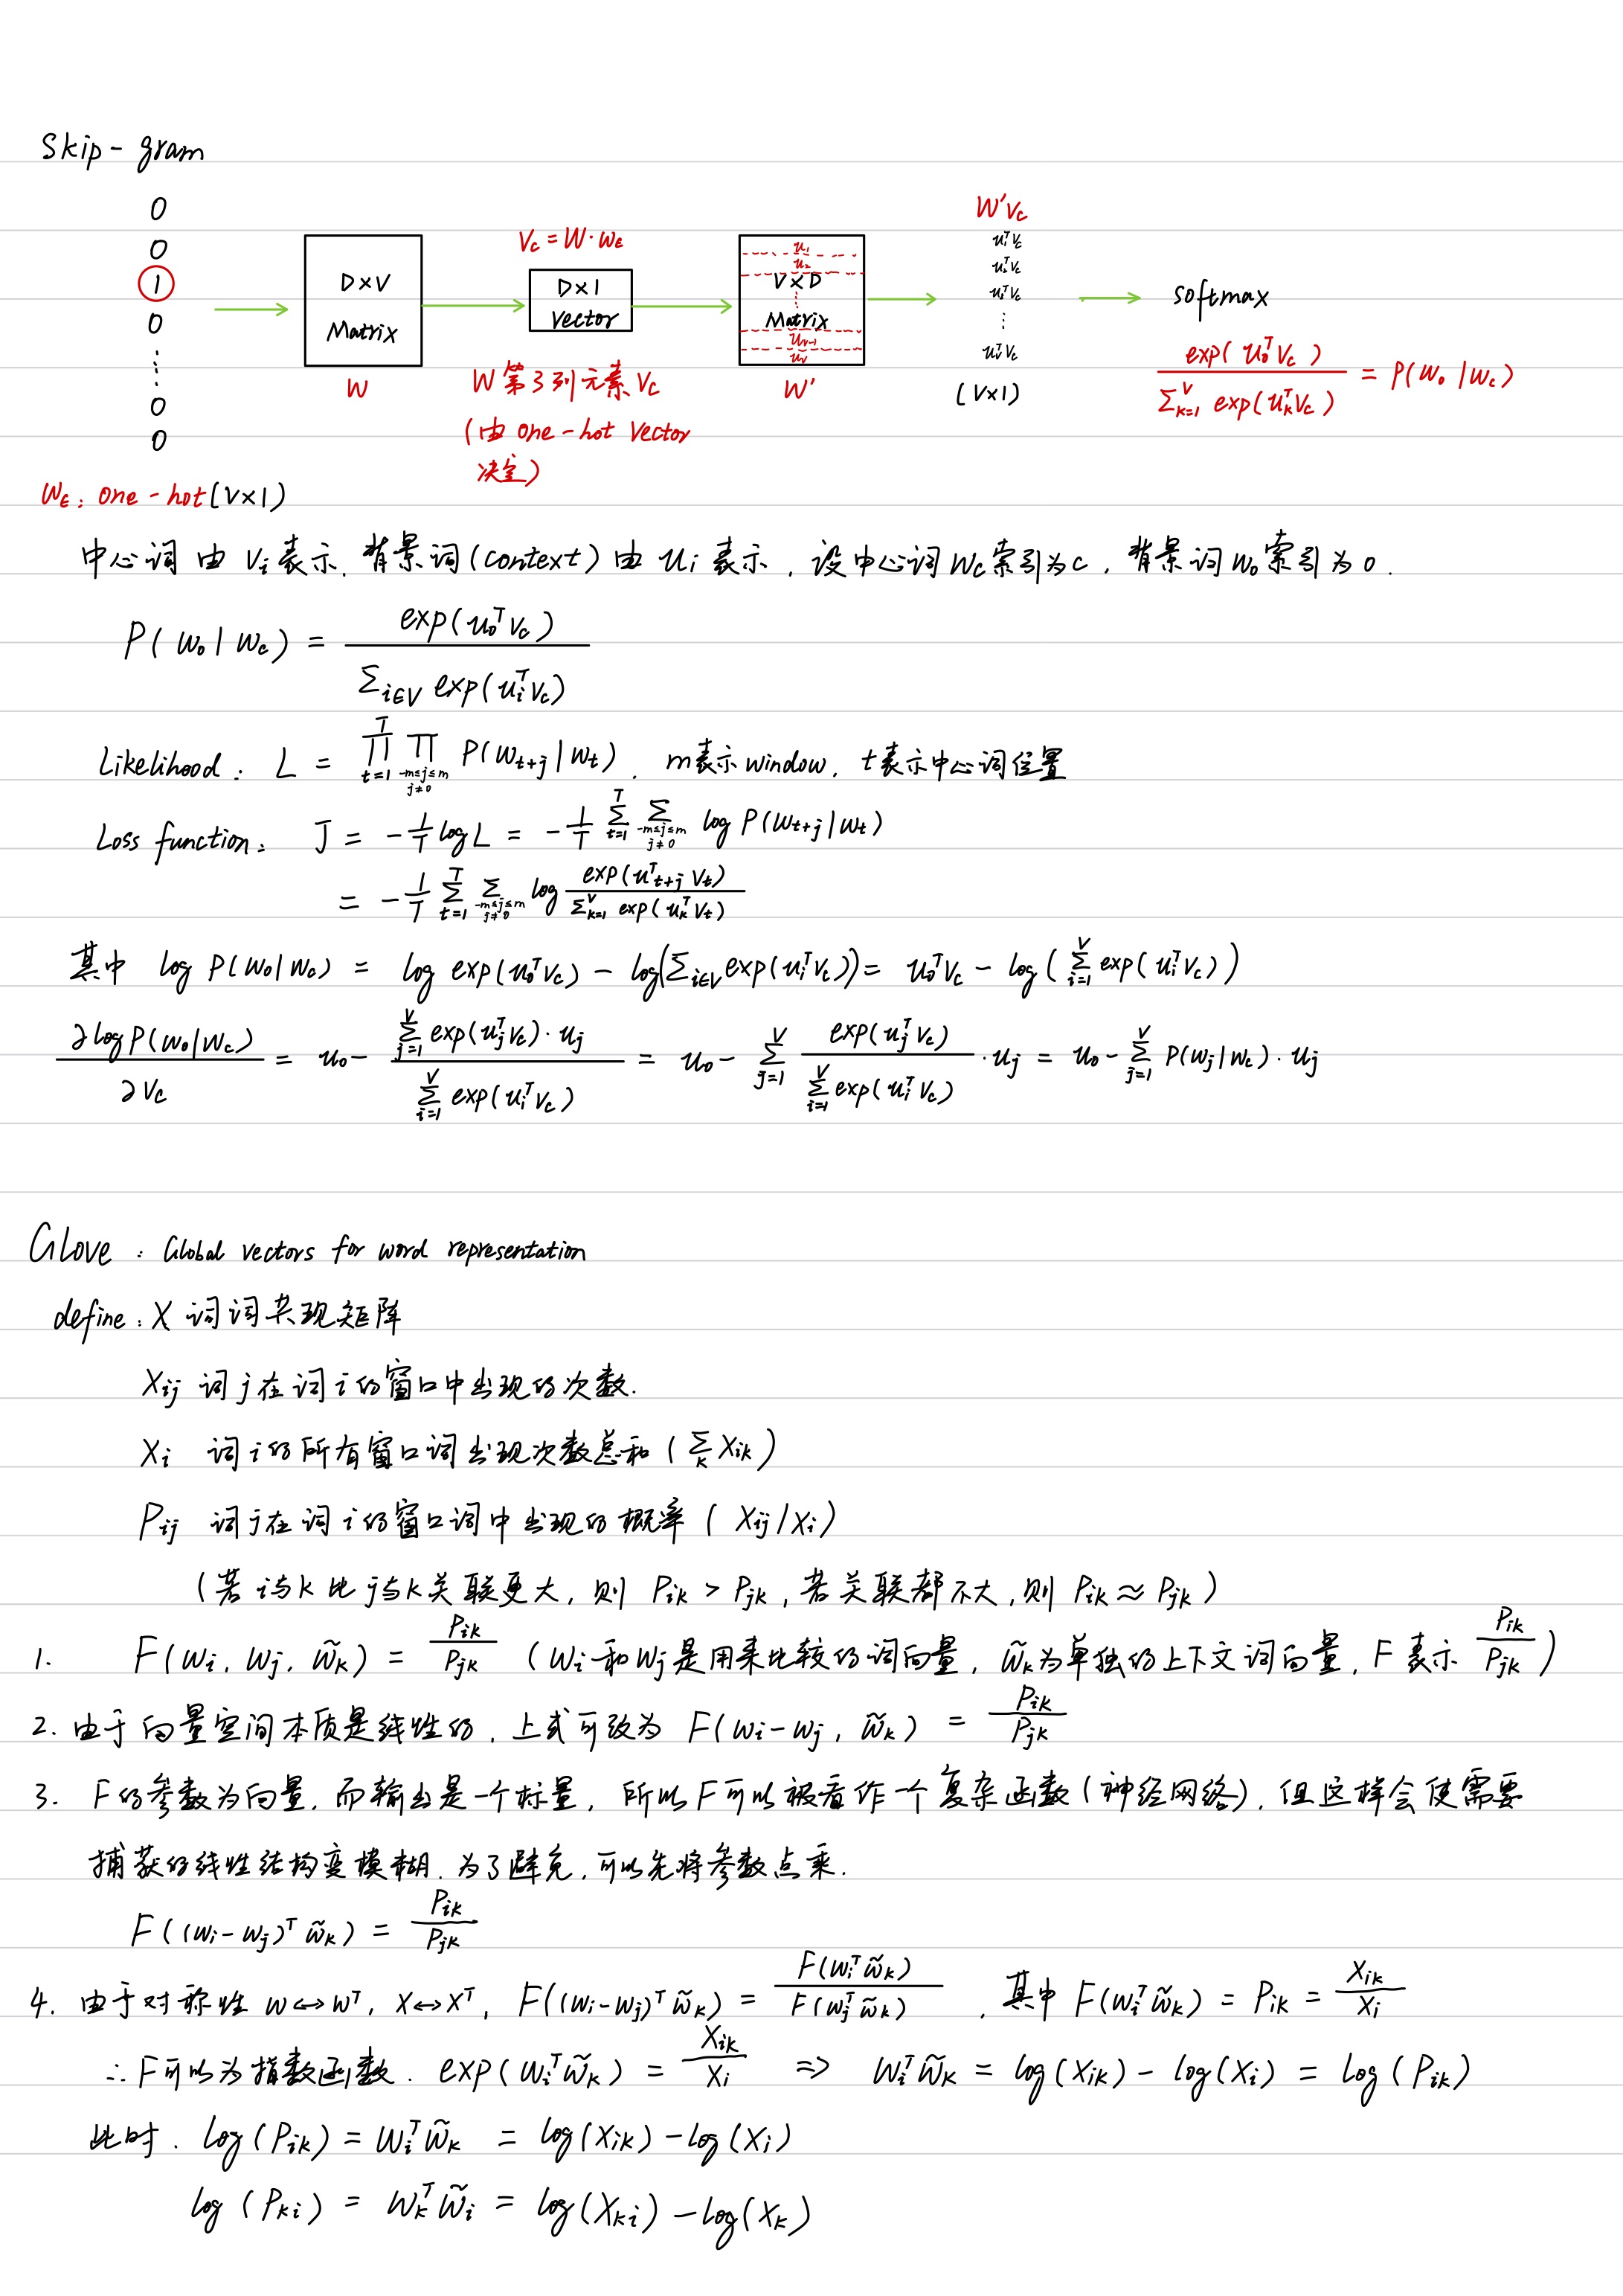 Skip-gram
0
0
1
0
⋮
0
0
D×V
Matrix
W
V_c = W·w_c
D×1
Vector
W 第3列元素 V_c
(由 one-hot vector
决定)
u_1
u_2
V×D
⋮
Matrix
u_{v-1}
u_v
W'
W'V_c
u_1^T V_c
u_2^T V_c
u_3^T V_c
⋮
u_v^T V_c
(V×1)
softmax
exp(u_o^T V_c) / Σ_{k=1}^V exp(u_k^T V_c) = P(w_o|w_c)
w_c: one-hot (V×1)
中心词由 V_i 表示, 背景词(context)由 u_i 表示, 设中心词 W_c 索引为 c, 背景词 w_o 索引为 o.
P(w_o|w_c) = exp(u_o^T V_c) / Σ_{i∈V} exp(u_i^T V_c)
Likelihood: L = ∏_{t=1}^T ∏_{-m≤j≤m, j≠0} P(w_{t+j}|w_t), m表示window, t表示中心词位置
Loss function: J = -1/T log L = -1/T Σ_{t=1}^T Σ_{-m≤j≤m, j≠0} log P(w_{t+j}|w_t)
= -1/T Σ_{t=1}^T Σ_{-m≤j≤m, j≠0} log exp(u^T_{t+j} V_t) / Σ_{k=1}^V exp(u_k^T V_t)
其中 log P(w_o|w_c) = log exp(u_o^T V_c) - log(Σ_{i∈V} exp(u_i^T V_c)) = u_o^T V_c - log(Σ_{i=1}^V exp(u_i^T V_c))
∂log P(w_o|w_c) / ∂V_c = u_o - Σ_{j=1}^V exp(u_j^T V_c)·u_j / Σ_{i=1}^V exp(u_i^T V_c) = u_o - Σ_{j=1}^V exp(u_j^T V_c) / Σ_{i=1}^V exp(u_i^T V_c) · u_j = u_o - Σ_{j=1}^V P(w_j|w_c)·u_j
Glove: Global vectors for word representation
define: X 词词共现矩阵
X_ij 词j在词i的窗口中出现的次数.
X_i 词i的所有窗口词出现次数总和 (Σ_k X_ik)
P_ij 词j在词i的窗口词中出现的概率 (X_ij/X_i)
(若i与k比j与k关联更大, 则 P_ik > P_jk, 若关联都不大, 则 P_ik ≈ P_jk)
1. F(w_i, w_j, w̃_k) = P_ik/P_jk (w_i和w_j是用来比较的词向量, w̃_k为单独的上下文词向量, F表示 P_ik/P_jk)
2. 由于向量空间本质是线性的, 上式可改为 F(w_i-w_j, w̃_k) = P_ik/P_jk
3. F的参数为向量, 而输出是一个标量, 所以F可以被看作一个复杂函数(神经网络), 但这样会使需要
捕获的线性结构变模糊, 为了避免, 可以先将参数点乘.
F((w_i-w_j)^T w̃_k) = P_ik/P_jk
4. 由于对称性 w↔w^T, X↔X^T, F((w_i-w_j)^T w̃_k) = F(w_i^T w̃_k) / F(w_j^T w̃_k), 其中 F(w_i^T w̃_k) = P_ik = X_ik/X_i
∴ F可以为指数函数. exp(w_i^T w̃_k) = X_ik/X_i ⇒ w_i^T w̃_k = log(X_ik) - log(X_i) = log(P_ik)
此时. log(P_ik) = w_i^T w̃_k = log(X_ik) - log(X_i)
log(P_ki) = w_k^T w̃_i = log(X_ki) - log(X_k)